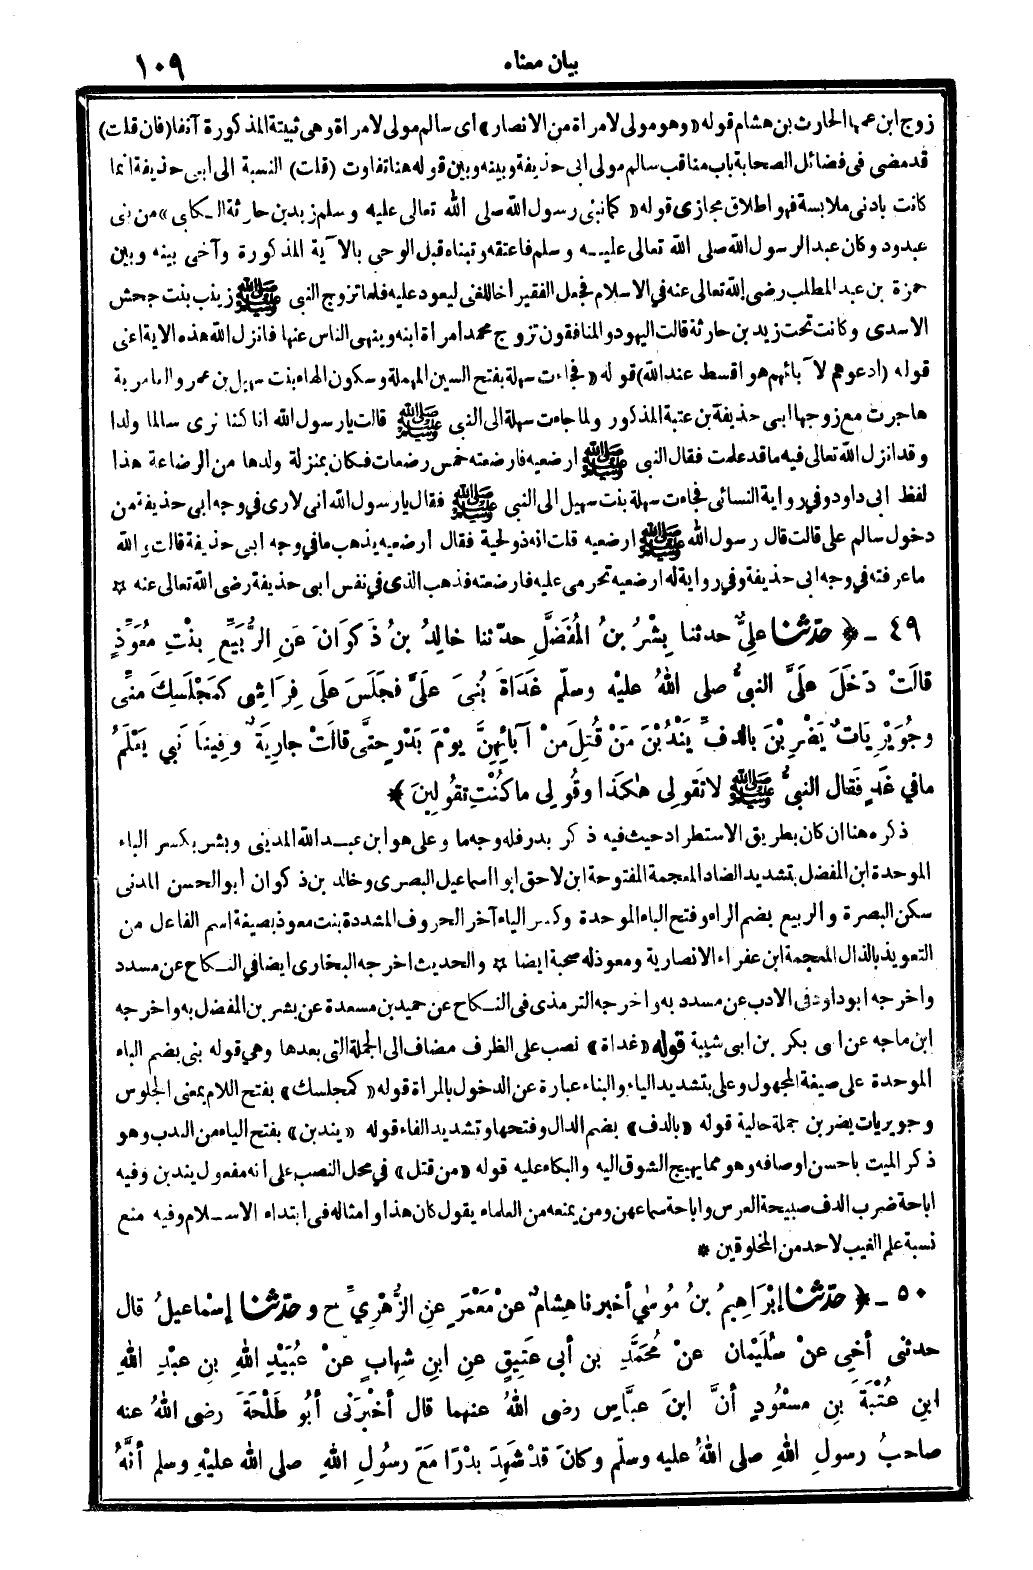 بيان معناه
١٠٩
زوج ابن عمها الحارث بن هشام قوله «وهو مولى لامرأة من الانصار» اى سالم مولى لامرأة وهى ثبيتة المذكورة آنفا (فان قلت)
قد مضى فى فضائل الصحابة باب مناقب سالم مولى ابى حذيفة وبينه وبين قوله هنا تفاوت (قلت) النسبة الى ابى حذيفة انما
كانت بادنى ملابسة فهو اطلاق مجازى قوله «كما تبنى رسول الله صلى الله تعالى عليه وسلم زيد بن حارثة الكلبى» من بنى
عبدود وكان عبدا لرسول الله صلى الله تعالى عليه وسلم فاعتقه وتبناه قبل الوحى بالآية المذكورة وآخى بينه وبين
حمزة بن عبد المطلب رضى الله تعالى عنه فى الاسلام فجعل الفقير اخا للغنى ليعود عليه فلما تزوج النبى ﷺ زينب بنت جحش
الاسدى وكانت تحت زيد بن حارثة قالت اليهود والمنافقون تزوج محمد امرأة ابنه وينهى الناس عنها فانزل الله هذه الاية اعنى
قوله (ادعوهم لآبائهم هو اقسط عند الله) قوله «فجاءت سهلة بفتح السين المهملة وسكون الهاء بنت سهيل بن عمرو العامرية
هاجرت مع زوجها ابى حذيفة بن عتبة المذكور ولما جاءت سهلة الى النبى ﷺ قالت يارسول الله انا كنا نرى سالما ولدا
وقد انزل الله تعالى فيه ما قد علمت فقال النبى ﷺ ارضعيه فارضعته خمس رضعات فكان بمنزلة ولدها من الرضاعة هذا
لفظ ابى داود وفى رواية النسائى فجاءت سهلة بنت سهيل الى النبى ﷺ فقال يارسول الله انى لارى فى وجه ابى حذيفة من
دخول سالم على قالت قال رسول الله ﷺ ارضعيه قلت انه ذو لحية فقال ارضعيه يذهب ما فى وجه ابى حذيفة قالت والله
ما عرفته فى وجه ابى حذيفة وفى رواية له ارضعيه تحرمى عليه فارضعته فذهب الذى فى نفس ابى حذيفة رضى الله تعالى عنه *
٤٩ - ﴿ حَدَّثَنَا عَلِيٌّ حدثنا بِشْرُ بنُ المُفَضَّلِ حدّثنا خالِدُ بنُ ذَكْوَانَ عَنِ الرُّبَيِّعِ بِنْتِ مُعَوِّذٍ
قالَتْ دَخَلَ علَىَّ النبىُّ صلى اللهُ عليْهِ وسلّم غَدَاةَ بُنِىَ علَىَّ فجَلَسَ علَى فِرَاشِى كمَجْلَسِكَ مِنِّى
وجُوَيْرِيَاتٌ يَضْرِبْنَ بالدفِّ يَنْدُبْنَ مَنْ قُتِلَ مِنْ آبائِهِنَّ يوْمَ بَدْرٍ حتَّى قالَتْ جارِيَةٌ وفِينَا نَبيٌّ يَعْلَمُ
ما في غَدٍ فَقال النبىُّ ﷺ لا تَقولِى هٰكَذَا وقُولِى ما كُنْتِ تقُولِينَ ﴾
ذكره هنا ان كان بطريق الاستطراد حيث فيه ذكر بدر فله وجه ما وعلى هو ابن عبد الله المدينى وبشر بكسر الباء
الموحدة ابن المفضل بتشديد الضاد المعجمة المفتوحة ابن لاحق ابو اسماعيل البصرى وخالد بن ذكوان ابو الحسن المدنى
سكن البصرة والربيع بضم الراء وفتح الباء الموحدة وكسر الياء آخر الحروف المشددة بنت معوذ بصيغة اسم الفاعل من
التعويذ بالذال المعجمة ابن عفراء الانصارية ومعوذ له صحبة ايضا * والحديث اخرجه البخارى ايضا فى النكاح عن مسدد
واخرجه ابو داود فى الادب عن مسدد به واخرجه الترمذى فى النكاح عن حميد بن مسعدة عن بشر بن المفضل به واخرجه
ابن ماجه عن ابى بكر بن ابى شيبة قوله «غداة» نصب على الظرف مضاف الى الجملة التى بعدها وهى قوله بنى بضم الباء
الموحدة على صيغة المجهول وعلى بتشديد الياء والبناء عبارة عن الدخول بالمرأة قوله «كمجلسك» بفتح اللام بمعنى الجلوس
وجويريات يضربن جملة حالية قوله «بالدف» بضم الدال وفتحها وتشديد الفاء قوله «يندبن» بفتح الياء من الندب وهو
ذكر الميت باحسن اوصافه وهو مما يهيج الشوق اليه والبكاء عليه قوله «من قتل» فى محل النصب على انه مفعول يندبن وفيه
اباحة ضرب الدف صبيحة العرس واباحة سماعهن ومن يمنعه من العلماء يقول كان هذا وامثاله فى ابتداء الاسلام وفيه منع
نسبة علم الغيب لاحد من المخلوقين *
٥٠ - ﴿ حَدَّثَنَا إبْرَاهِيمُ بنُ مُوسٰى أخبرنا هِشامٌ عنْ مَعْمَرٍ عنِ الزُّهْرِيِّ ح وحَدَّثَنَا إسْماعيلُ قال
حدثنى أخى عنْ سُلَيْمان عنْ مُحَمَّدِ بن أبى عَتِيقٍ عنِ ابنِ شِهابٍ عنْ عُبَيْدِ اللهِ بنِ عبْدِ اللهِ
ابنِ عُتْبَةَ بنِ مسْعُودٍ أنَّ ابنَ عبَّاسٍ رضى اللهُ عنهما قال أخْبَرَنى أبُو طَلْحَةَ رضى اللهُ عنه
صاحبُ رسولِ اللهِ صلى اللهُ عليه وسلّم وكانَ قدْ شَهِدَ بدْرًا مَعَ رسُولِ اللهِ صلى الله عليْهِ وسلم أنَّهُ